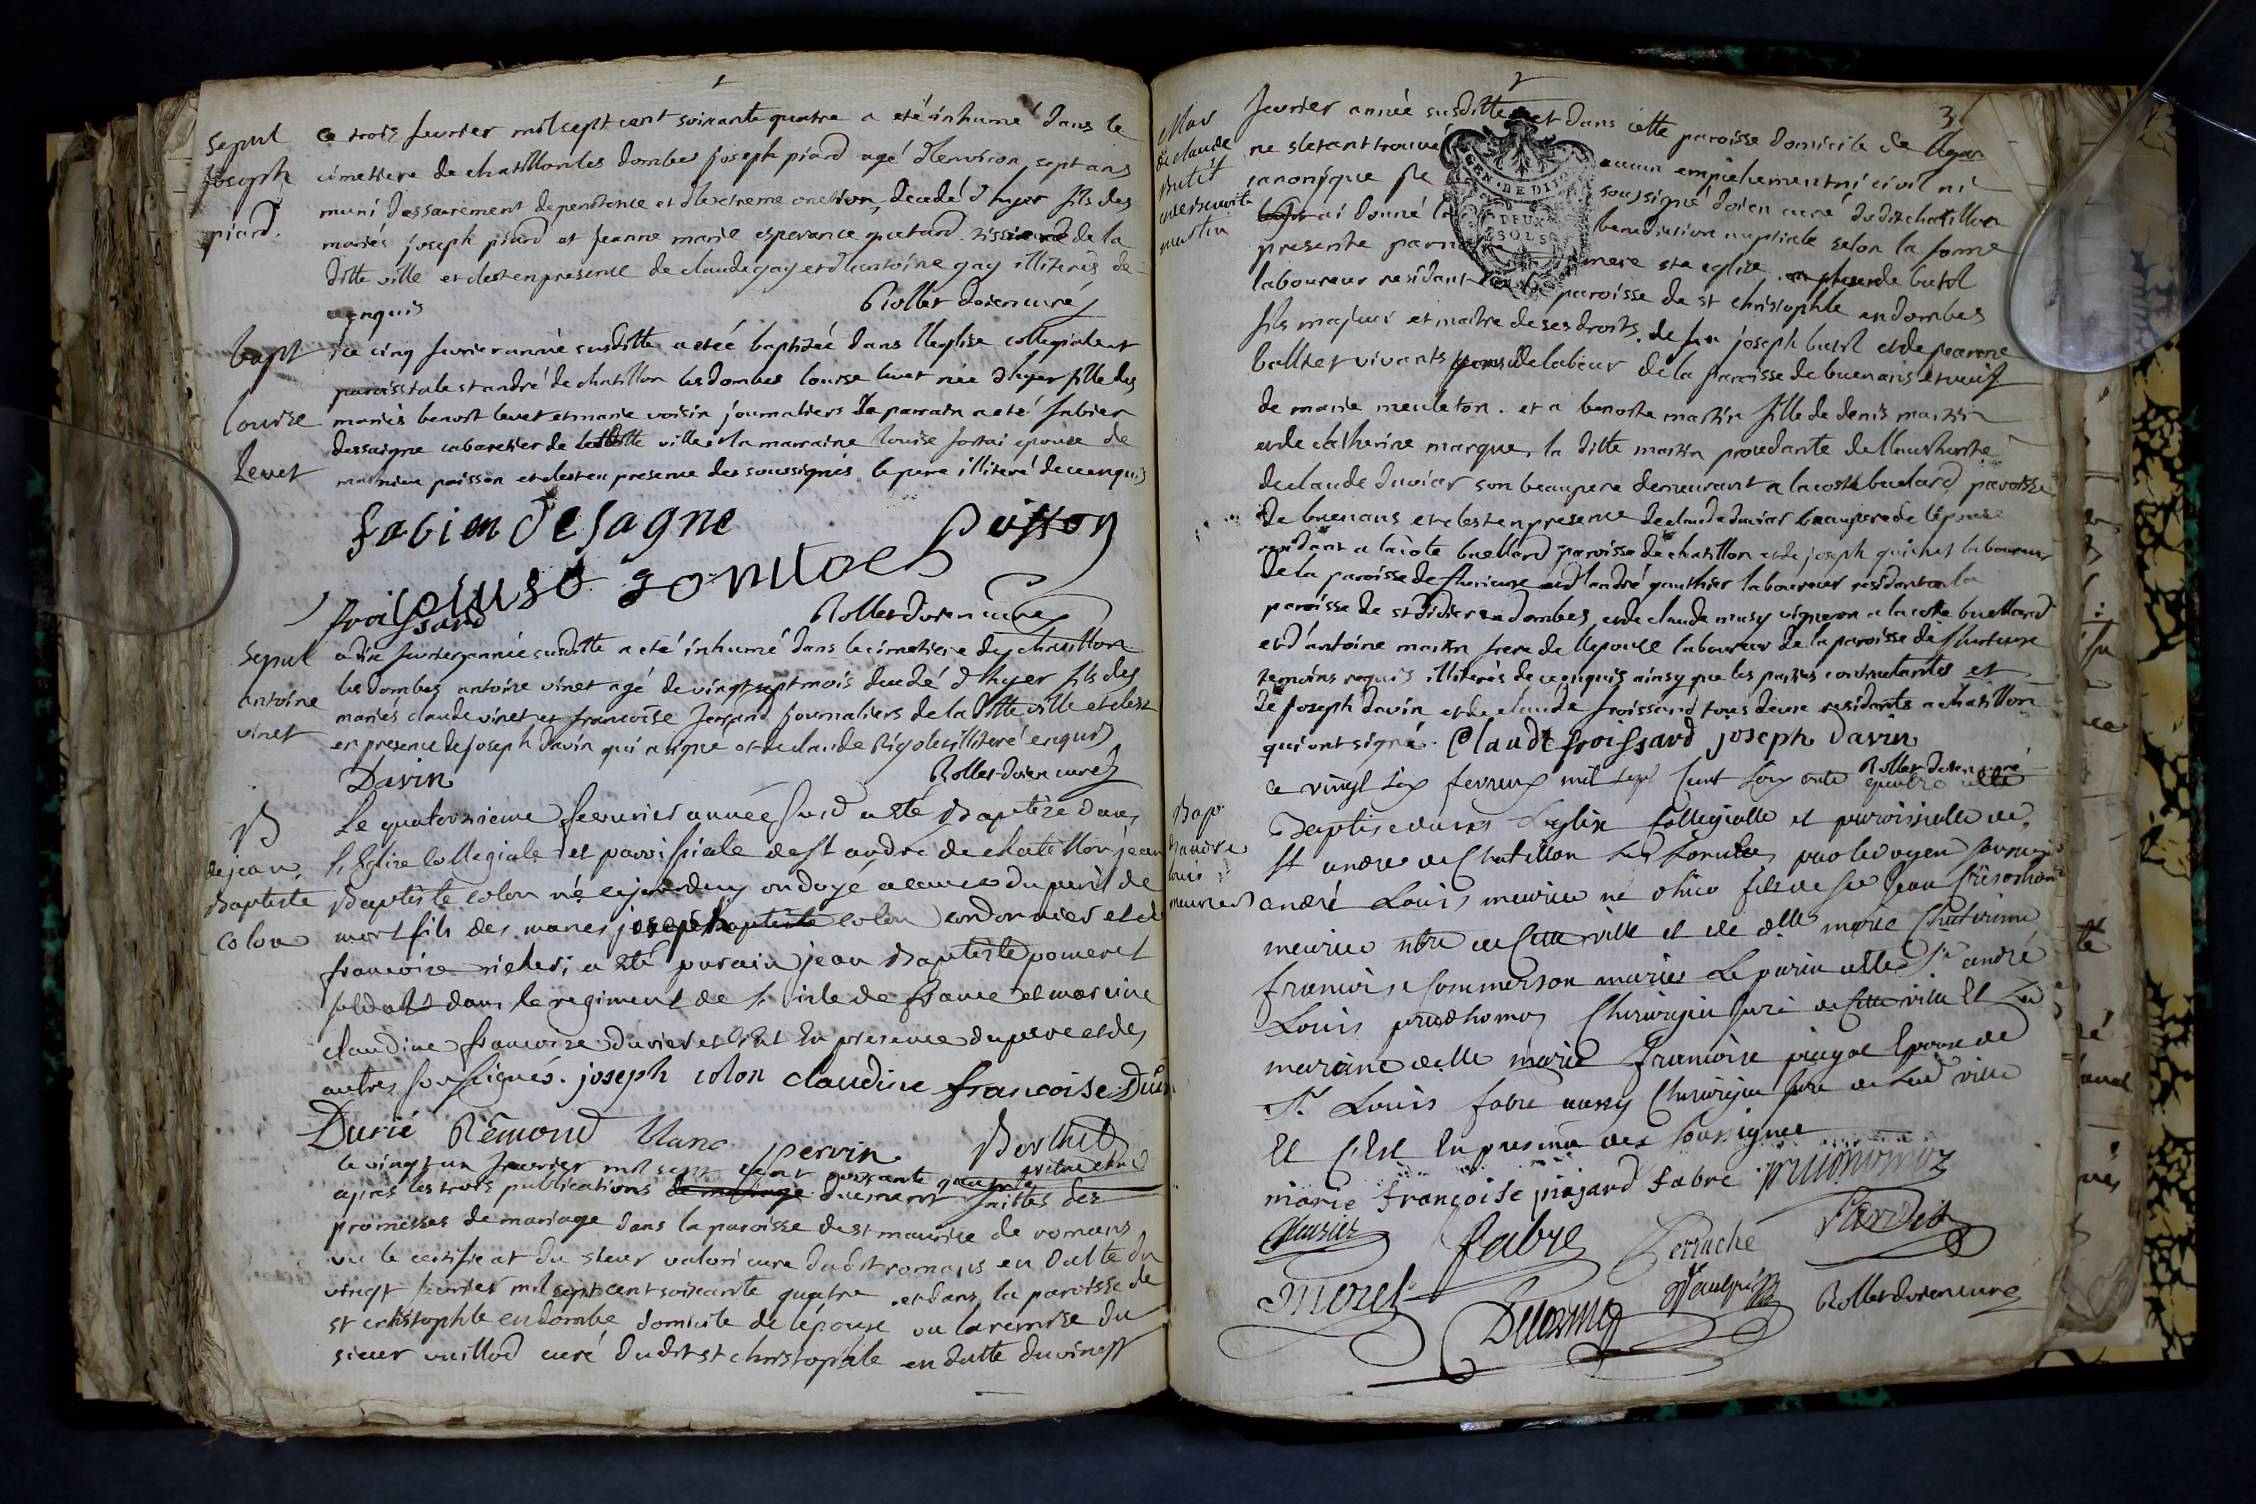 sepul
joseph
piard.
ce trois fevrier mil sept cent soixante quatre a eté inhumé dans le
cimetiere de chatillon les dombes joseph piard agé d'environ sept ans
muni des sacrement de penitence et d'extreme onction, decedé d'hyer fils des
mariés joseph piard et jeanne marie esperance quetard. tissierand de la
ditte ville et c'est en presence de claude gay et d'antoine gay illiterés de
ce enquis
Rollet doien curé
bapt
louise
levet
ce cinq fevrier année susditte a eté baptizée dans l'eglise collegiale et
paroissiale st andré de chatillon les dombes louise levet née d'hyer fille des
mariés benoit levet et marie voisin journaliers le parrain a eté fabien
dessaigne cabaretier de laditte ville et la marraine louise épouse de
poisson et c'est en presence des soussignés le pere illiteré de ce enquis
fabien desagne
poisson
froissard
Rollet doien curé
sepul
antoine
vinet
ce dix fevrier année susditte a eté inhumé dans le cimetiere de chatillon
les dombes antoine vinet agé de vingt sept mois decedé d'hyer fils des
mariés claude vinet et francoise journaliers de la ditte ville et c'est
en presence de joseph davin qui a signé et de claude Rigolet illiteré enquis
Davin
Rollet doien curé
B
de jean
Baptiste
colon
Le quatorzieme fevrier année susd a eté Baptizé dans
l'Eglise collegiale et paroissiale de st andré de chatillon jean
Baptiste colon né cejourdhuy ondoyé a cause du peril de
mort fils des mariés joseph baptiste colon cordonnier et de
francoise a eté parain jean Baptiste pomeret
soldat dans le regiment de l'isle de france et maraine
claudine francoise durier et c'est En presence du pere et des
autres soussignés. joseph colon claudine francoise
Durié Rémond blanc pervin Berthet
le vingt un fevrier mil sept cent soixante quatre
apres les trois publications de mariage duement faittes des
promesses de mariage dans la paroisse de st maurice de romans
vu le certificat du sieur curé dudit romans en datte du
vingt fevrier mil sept cent soixante quatre. et dans la paroisse de
st christophle en dombe domicile de lépoux vu la remise du
sieur curé dudit st christophle en datte du vingt
3
Mar
de claude
butil
avec benoite
martin
fevrier année susditte et dans cette paroisse domicile de
ne s'etant trouvé aucun empechement ni civil ni
canonique je soussigné doien curé dudit chatillon
ai donné la benediction nuptiale selon la forme
GEN. DE DIJON
DEUX
SOLS
presente par notre mere ste eglise butil
laboureur residant paroisse de st christophle en dombes
fils majeur et maitre de ses droits. de feu joseph butil et de jeanne
ballet vivants de labeur de la paroisse de buenans et veuf
de marie meuleton. et a benoite martin fille de denis martin
et de catherine marque, la ditte martin procedante de l'authorité
de claude duviar son beaupere demeurant a la coste paroisse
de buenans et c'est en presence de claude duviar beaupere de lépouse
residant a la côte buellard paroisse de chatillon et de joseph laboureur
de la paroisse de et d'andré gauthier laboureur residant en la
paroisse de st didier en dombes, et de claude musy vigneron a la cotte buellard
et d'antoine martin frere de l'epouse laboureur de la paroisse de
temoins requis illiterés de ce enquis ainsy que les parties contractantes et
de joseph davin et de claude froissard tous deux residants a chatillon
qui ont signé. Claude froissard joseph davin
Rollet doien curé
Bap
d'andré
louis
meurier
ce vingt six fevrier mil sept Cent soix ante quatre
Baptisé dans Leglise Collegialle et paroissialle de
st andré de Chatillon les dombes par le doyen
andré Louis né d'hier fils de Sr Jean
ntre de Cette ville et de dlle marie Chaterinne
francoise Commerson mariés Le parin Sr andré
Louis prudhomoz Chirurgien juré de Cette ville Et
maraine delle marie francoise piajar Epouse de
Sr Louis fabre aussy Chirurgien juré de ville
Et C'Est En presence des soussignés
marie françoise piajard fabre
fabre Perruche
Merel Delorme Rollet doien curé